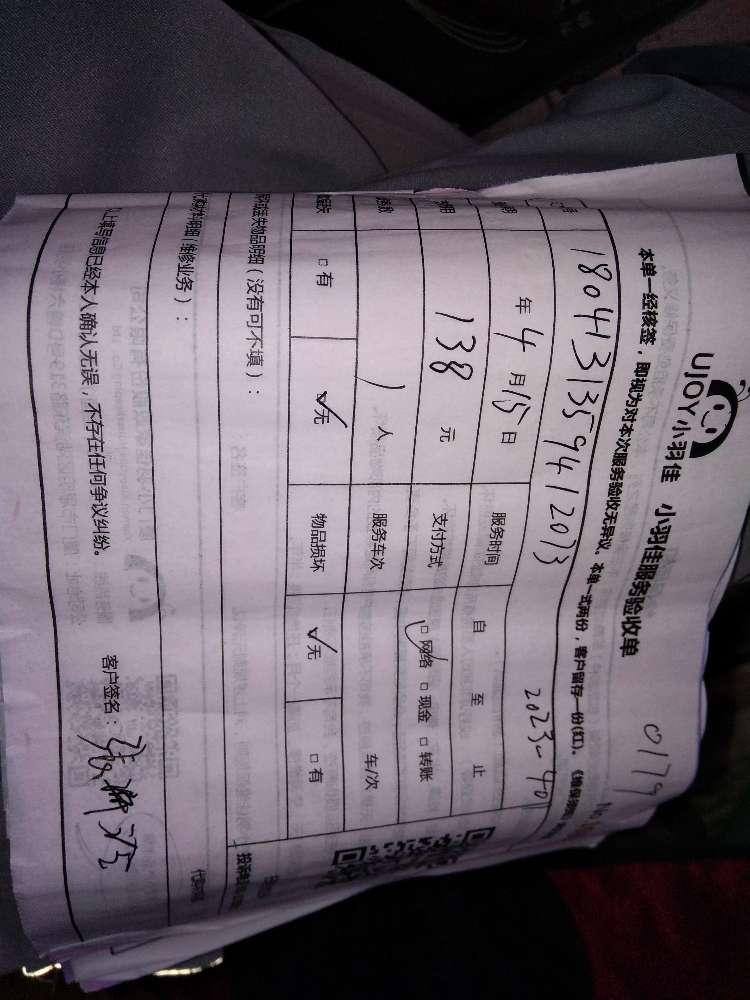 UJOY小羽佳 小羽佳服务验收单
0179
本单一经核签，即视为对本次服务验收无异议。本单一式两份，客户留存一份(红)。
180431359412073
2023-40
年4月15日 服务时间 自 至 止
138 元 支付方式 □网络 □现金 □转账
1 人 服务车次 车/次
□有 √无 物品损坏 √无 □有
失物品明细（没有可不填）：
明细（维修业务）：
以上填写信息已经本人确认无误，不存在任何争议纠纷。
客户签名：